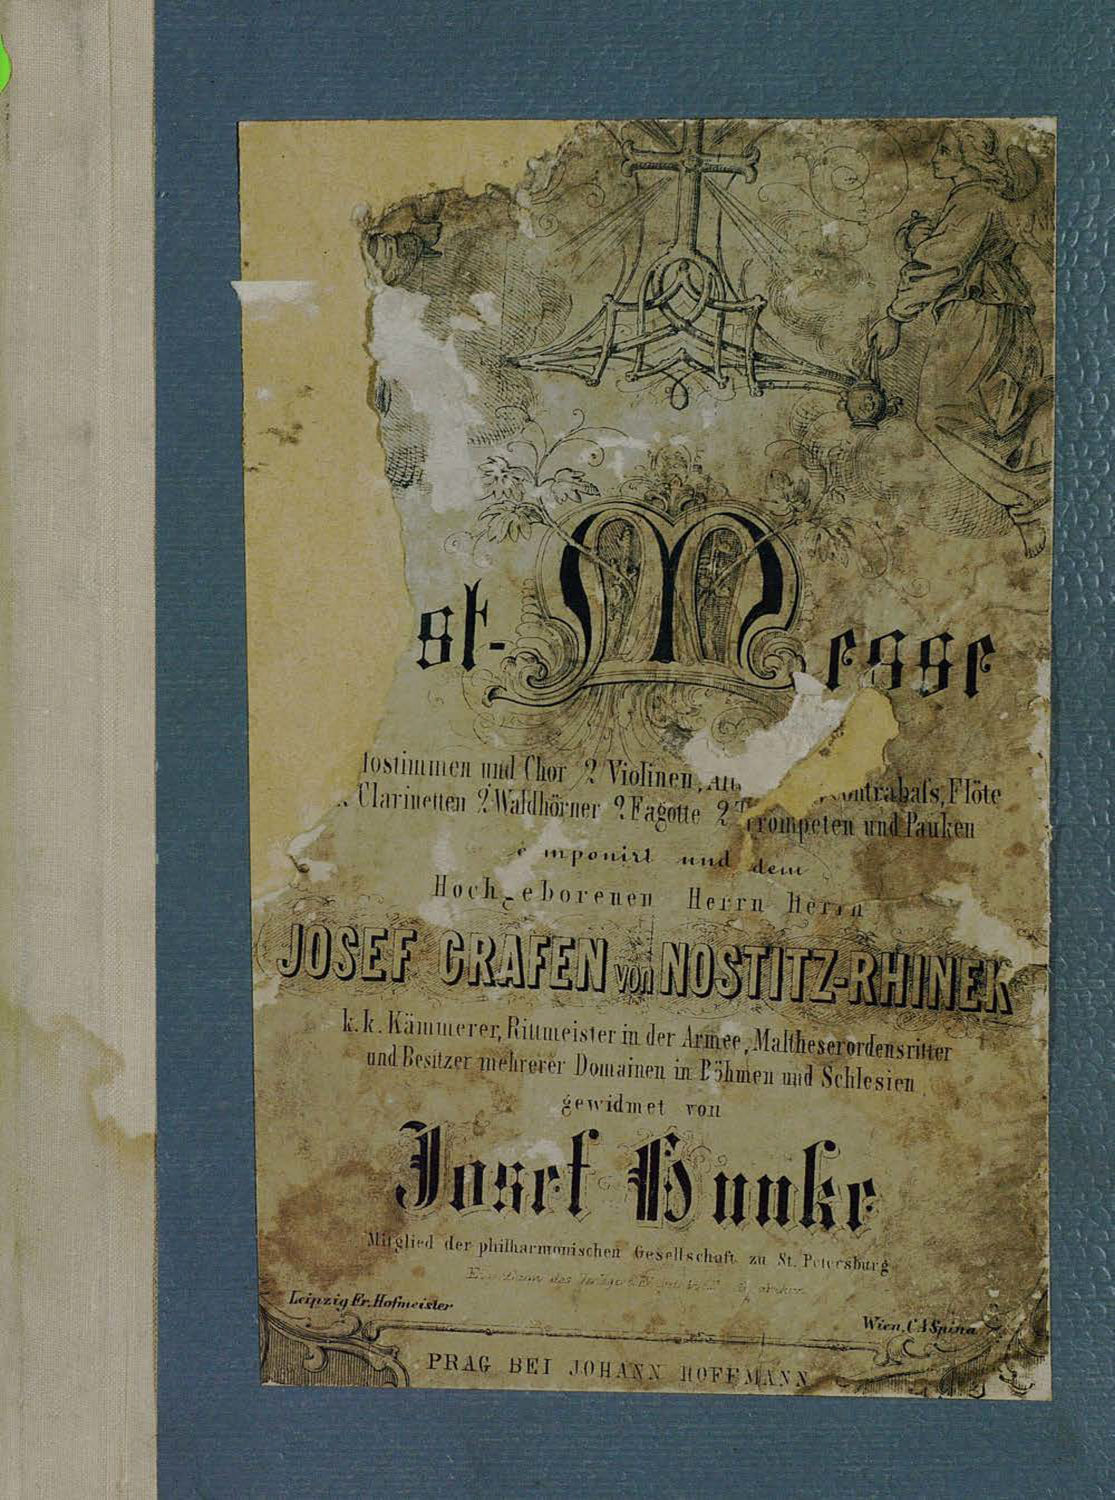 st-Messe
tostimmen und Chor 2 Violinen, Alt ontrabaſs, Flöte
Clarinetten 2 Waldhörner 2 Fagotte 2 Trompeten und Pauken
mponirt und dem
Hochgeborenen Herrn Herrn
JOSEF GRAFEN von NOSTITZ-RHINEK
k.k. Kämmerer, Rittmeister in der Armee, Maltheserordensritter
und Besitzer mehrerer Domainen in Böhmen und Schlesien
gewidmet von
Josef Hunke
Mitglied der philharmonischen Gesellschaft zu St. Petersburg
Leipzig Fr. Hofmeister
Wien, C A Spina
PRAG BEI JOHANN HOFFMANN